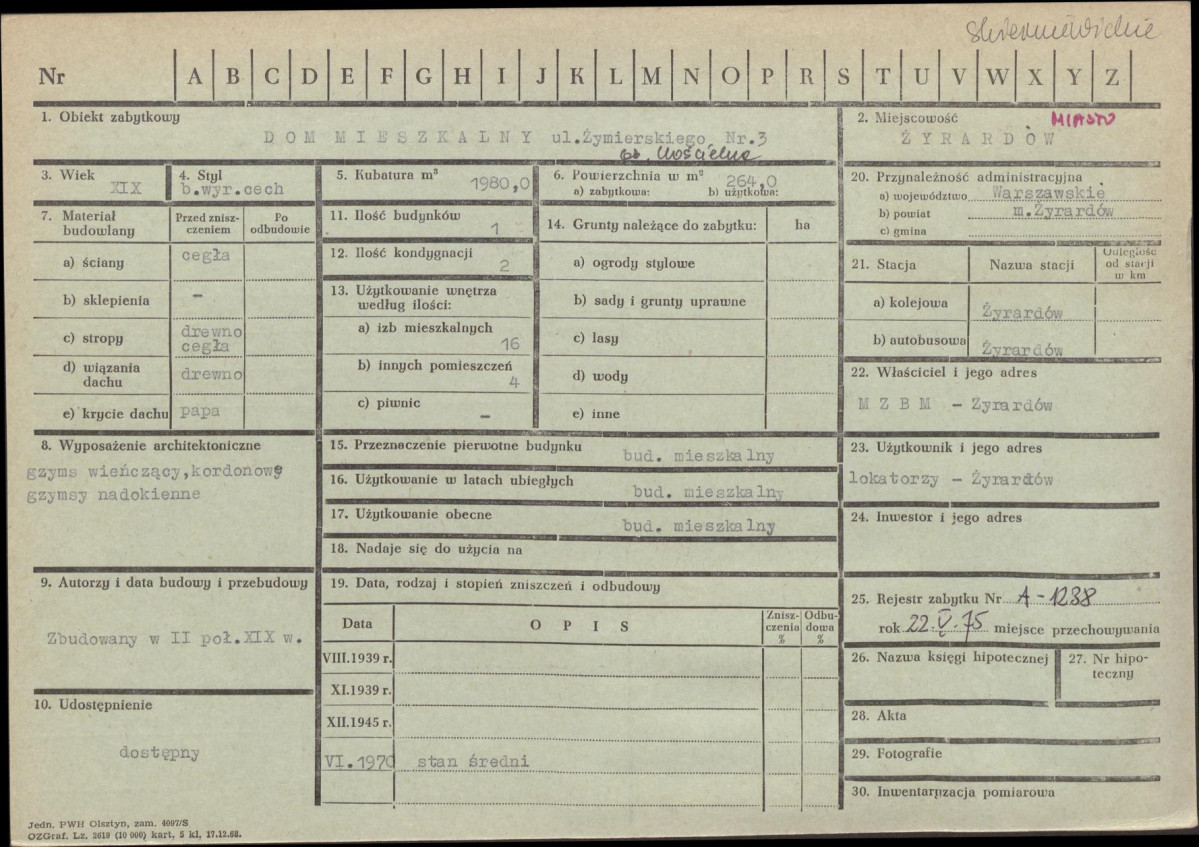 skierniewickie
Nr A B C D E F G H I J K L M N O P R S T U V W X Y Z
1. Obiekt zabytkowy
DOM MIESZKALNY ul.Żymierskiego Nr.3
ob. Kościelna
2. Miejscowość MIASTO
ŻYRARDÓW
3. Wiek
XIX
4. Styl
b.wyr.cech
5. Kubatura m³
1980,0
6. Powierzchnia w m²
264,0
a) zabytkowa: b) użytkowa:
20. Przynależność administracyjna
a) województwo Warszawskie
b) powiat m.Żyrardów
c) gmina
7. Materiał budowlany
Przed znisz-
czeniem
Po
odbudowie
a) ściany cegła
b) sklepienia –
c) stropy drewno
cegła
d) wiązania
dachu drewno
e) krycie dachu papa
11. Ilość budynków
1
12. Ilość kondygnacji
2
13. Użytkowanie wnętrza
według ilości:
a) izb mieszkalnych
16
b) innych pomieszczeń
4
c) piwnic
–
14. Grunty należące do zabytku: ha
a) ogrody stylowe
b) sady i grunty uprawne
c) lasy
d) wody
e) inne
21. Stacja Nazwa stacji Odległość
od stacji
w km
a) kolejowa Żyrardów
b) autobusowa Żyrardów
22. Właściciel i jego adres
M Z B M – Żyrardów
8. Wyposażenie architektoniczne
gzyms wieńczący,kordonowe
gzymsy nadokienne
15. Przeznaczenie pierwotne budynku
bud. mieszkalny
16. Użytkowanie w latach ubiegłych
bud. mieszkalny
17. Użytkowanie obecne
bud. mieszkalny
18. Nadaje się do użycia na
23. Użytkownik i jego adres
lokatorzy – Żyrardów
24. Inwestor i jego adres
9. Autorzy i data budowy i przebudowy
Zbudowany w II poł.XIX w.
10. Udostępnienie
dostępny
19. Data, rodzaj i stopień zniszczeń i odbudowy
Data OPIS Znisz-
czenia
% Odbu-
dowa
%
VIII.1939 r.
XI.1939 r.
XII.1945 r.
VI.1970 stan średni
25. Rejestr zabytku Nr A-1238
rok 22.V.75 miejsce przechowywania
26. Nazwa księgi hipotecznej
27. Nr hipo-
teczny
28. Akta
29. Fotografie
30. Inwentaryzacja pomiarowa
Jedn. PWH Olsztyn, zam. 4097/S
OZGraf. Lz. 2619 (10 000) kart, 5 kl, 17.12.68.